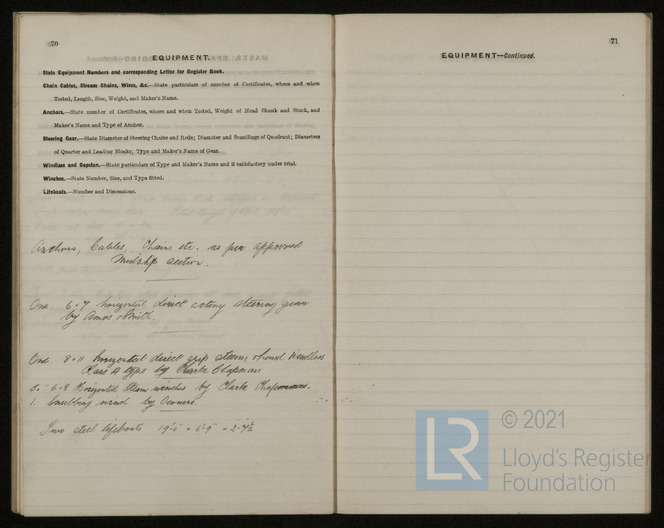 70
EQUIPMENT.
State Equipment Numbers and corresponding Letter for Register Book.
Chain Cables, Stream Chains, Wires, &c.—State particulars of number of Certificates, where and when
Tested, Length, Size, Weight, and Maker's Name.
Anchors.—State number of Certificates, where and when Tested, Weight of Head Shank and Stock, and
Maker's Name and Type of Anchor.
Steering Gear.—State Diameter of Steering Chains and Rods; Diameter and Scantlings of Quadrant; Diameters
of Quarter and Leading Blocks; Type and Maker's Name of Gear.
Windlass and Capstan.—State particulars of Type and Maker's Name and if satisfactory under trial.
Winches.—State Number, Size, and Type fitted.
Lifeboats.—Number and Dimensions.
Anchors, Cables, Chains etc. as per approved
Midship section.
One 6 x 7 horizontal direct acting steering gear
by Amos & Smith.
One 8 x 11 horizontal direct grip steam wheel Windlass
Class type by Clarke Chapman
6 x 8 Horizontal Steam winches by Clarke Chapman.
1. winch by Owners.
Two steel lifeboats
71
EQUIPMENT—Continued.
LR
© 2021
Lloyd's Register
Foundation